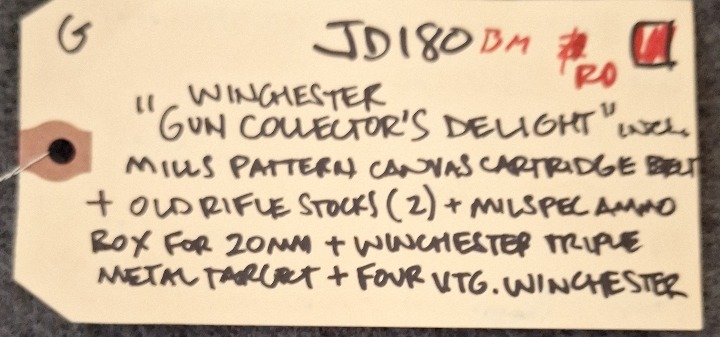 G JD180 BM RO
" WINCHESTER
GUN COLLECTOR'S DELIGHT" INCL.
MILLS PATTERN CANVAS CARTRIDGE BELT
+ OLD RIFLE STOCKS (2) + MILSPEC AMMO
BOX FOR 20MM + WINCHESTER TRIPLE
METAL TARGET + FOUR VTG. WINCHESTER